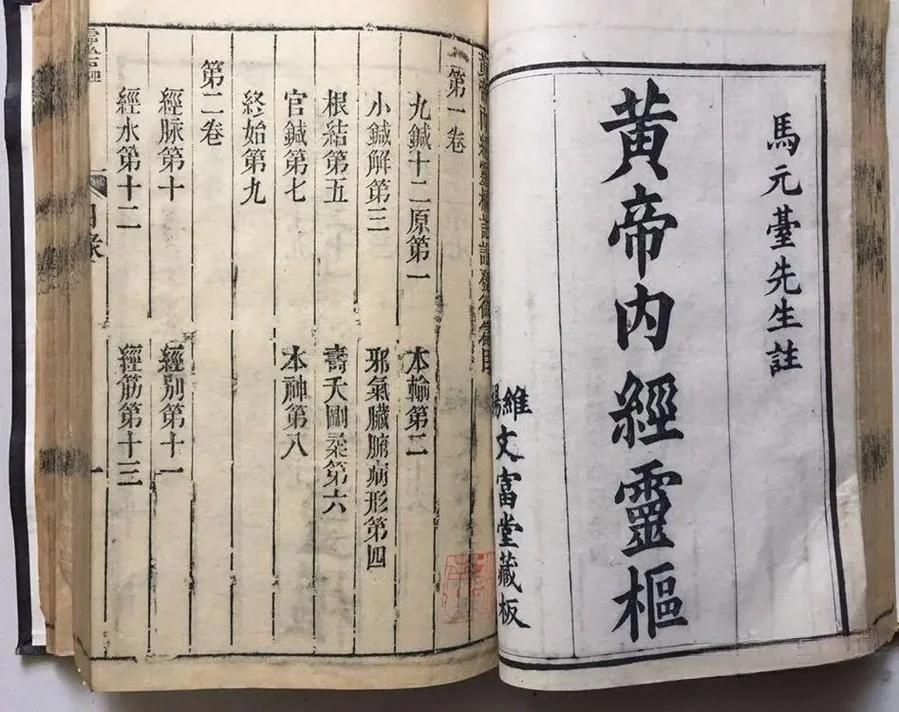 馬元臺先生註
黃帝內經靈樞
維揚文富堂藏板
黃帝內經靈樞註證發微篇目
第一卷
九鍼十二原第一
本輸第二
小鍼解第三
邪氣臟腑病形第四
根結第五
壽夭剛柔第六
官鍼第七
本神第八
終始第九
第二卷
經脉第十
經別第十一
經水第十二
經筋第十三
目錄
一